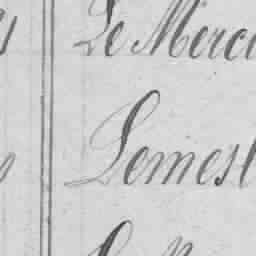 Le Merci
Lemesl